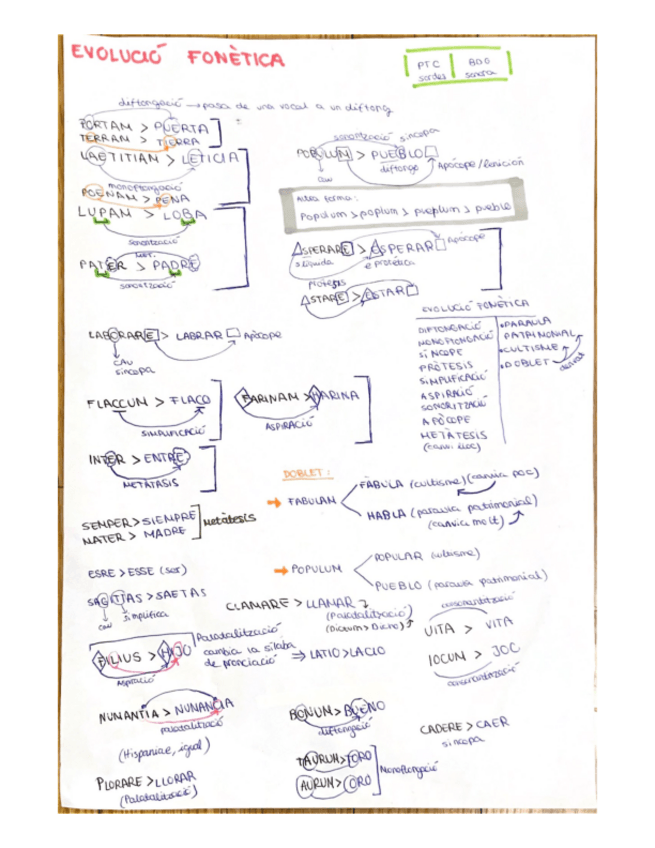 EVOLUCIÓ FONÈTICA
PTC BDG
sordes sonora
diftongació → pasa de una vocal a un diftong
PORTAM > PUERTA
TERRAM > TIERRA
LAETITIAM > LETICIA
monoftongació
POENAM > PENA
LUPAM > LOBA
sonorització
MET.
PATER > PADRE
sonorització
sonorització síncopa
POPULUM > PUEBLO
cau
diftongo
Apócope
Altra forma:
Populum > poplum > pueplum > pueblo
ASPERARE > ESPERAR Apócope
s líquida e protética
Pròtesis
ASTARE > ESTAR
LABORARE > LABRAR Apòcope
CAU
síncopa
EVOLUCIÓ FONÈTICA
DIPTONGACIÓ
MONOFTONGACIÓ
SÍNCOPE
PRÒTESIS
SIMPLIFICACIÓ
ASPIRACIÓ
SONORITZACIÓ
APÒCOPE
METÀTESIS
(canvi lloc)
• PARAULA
PATRIMONIAL
• CULTISME
• DOBLET
FLACCUM > FLACO
SIMPLIFICACIÓ
FARINAM > HARINA
ASPIRACIÓ
INTER > ENTRE
METÀTASIS
SEMPER > SIEMPRE
MATER > MADRE
Metàtesis
DOBLET:
→ FABULAM
FÁBULA (cultisme) (canvia poc)
HABLA (paraula patrimonial)
(canvia molt)
ESRE > ESSE (ser)
→ POPULUM
POPULAR cultisme)
PUEBLO (paraula patrimonial)
SAGITTAS > SAETAS
cau simplifica
CLAMARE > LLAMAR
(Palatalització)
consonantització
UITA > VITA
IOCUM > JOC
consonantització
FILIUS > HIJO
Aspiració
Palatalització
cambia la síl·laba
de
⇒ LATIO > LACIO
NUMANTIA > NUMANCIA
palatalització
(Hispaniae, igual)
BONUM > BUENO
diftongació
CADERE > CAER
síncopa
TAURUM > TORO
AURUM > ORO
Monoftongació
PLORARE > LLORAR
(Palatalització)